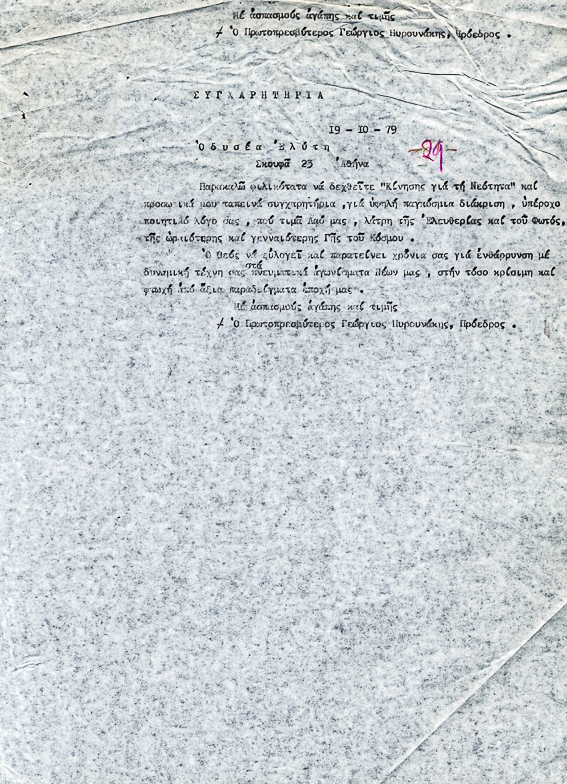 Μέ ἀσπασμούς ἀγάπης καί τιμῆς
+ Ὁ Πρωτοπρεσβύτερος Γεώργιος Πυρουνάκης, Πρόεδρος .
Σ Υ Γ Χ Α Ρ Η Τ Η Ρ Ι Α
19 - 10 - 79
29
Ὀ δ υ σ έ α Ἐ λ ύ τ η
Σκουφᾶ 23 Ἀθήνα
Παρακαλῶ φιλικότατα νά δεχθεῖτε "Κίνησης γιά τή Νεότητα" καί
προσωπικά μου ταπεινά συγχαρητήρια ,γιά ὑψηλή παγκόσμια διάκριση , ὑπέροχο
ποιητικό λόγο σας , πού τιμᾶ Λαό μας , λάτρη τῆς Ἐλευθερίας καί τοῦ Φωτός,
τῆς ὡραιότερης καί γενναιότερης Γῆς τοῦ Κόσμου .
Ὁ Θεός νά εὐλογεῖ καί παρατείνει χρόνια σας γιά ἐνθάρρυνση μέ
δυναμική τέχνη σας στά πνευματικά ἀγωνίσματα Νέων μας , στήν τόσο κρίσιμη καί
φτωχή ἀπό ἄξια παραδείγματα ἐποχή μας .
Μέ ἀσπασμούς ἀγάπης καί τιμῆς
+ Ὁ Πρωτοπρεσβύτερος Γεώργιος Πυρουνάκης, Πρόεδρος .